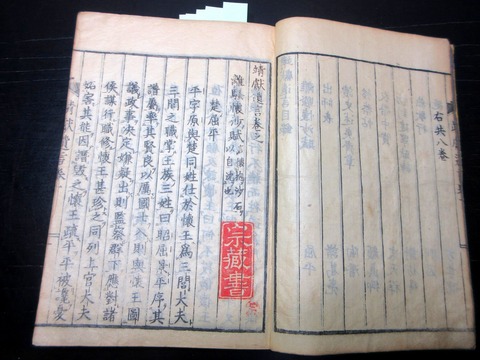 右共八卷
靖獻遺言卷之一
離騷懷沙賦 言懷抱沙石以自沈也
楚屈平
平字原與楚同姓仕於懷王爲三閭大夫
三閭之職掌王族三姓曰昭屈景平序其
譜屬率其賢良以厲國士入則與懷王圖
議政事決定嫌疑出則監察群下應對諸
侯謀行職修懷王甚珍之同列上官大夫
妬害其能因譖毀之懷王疏平平被讒憂
靖獻遺言卷一
宗藏書